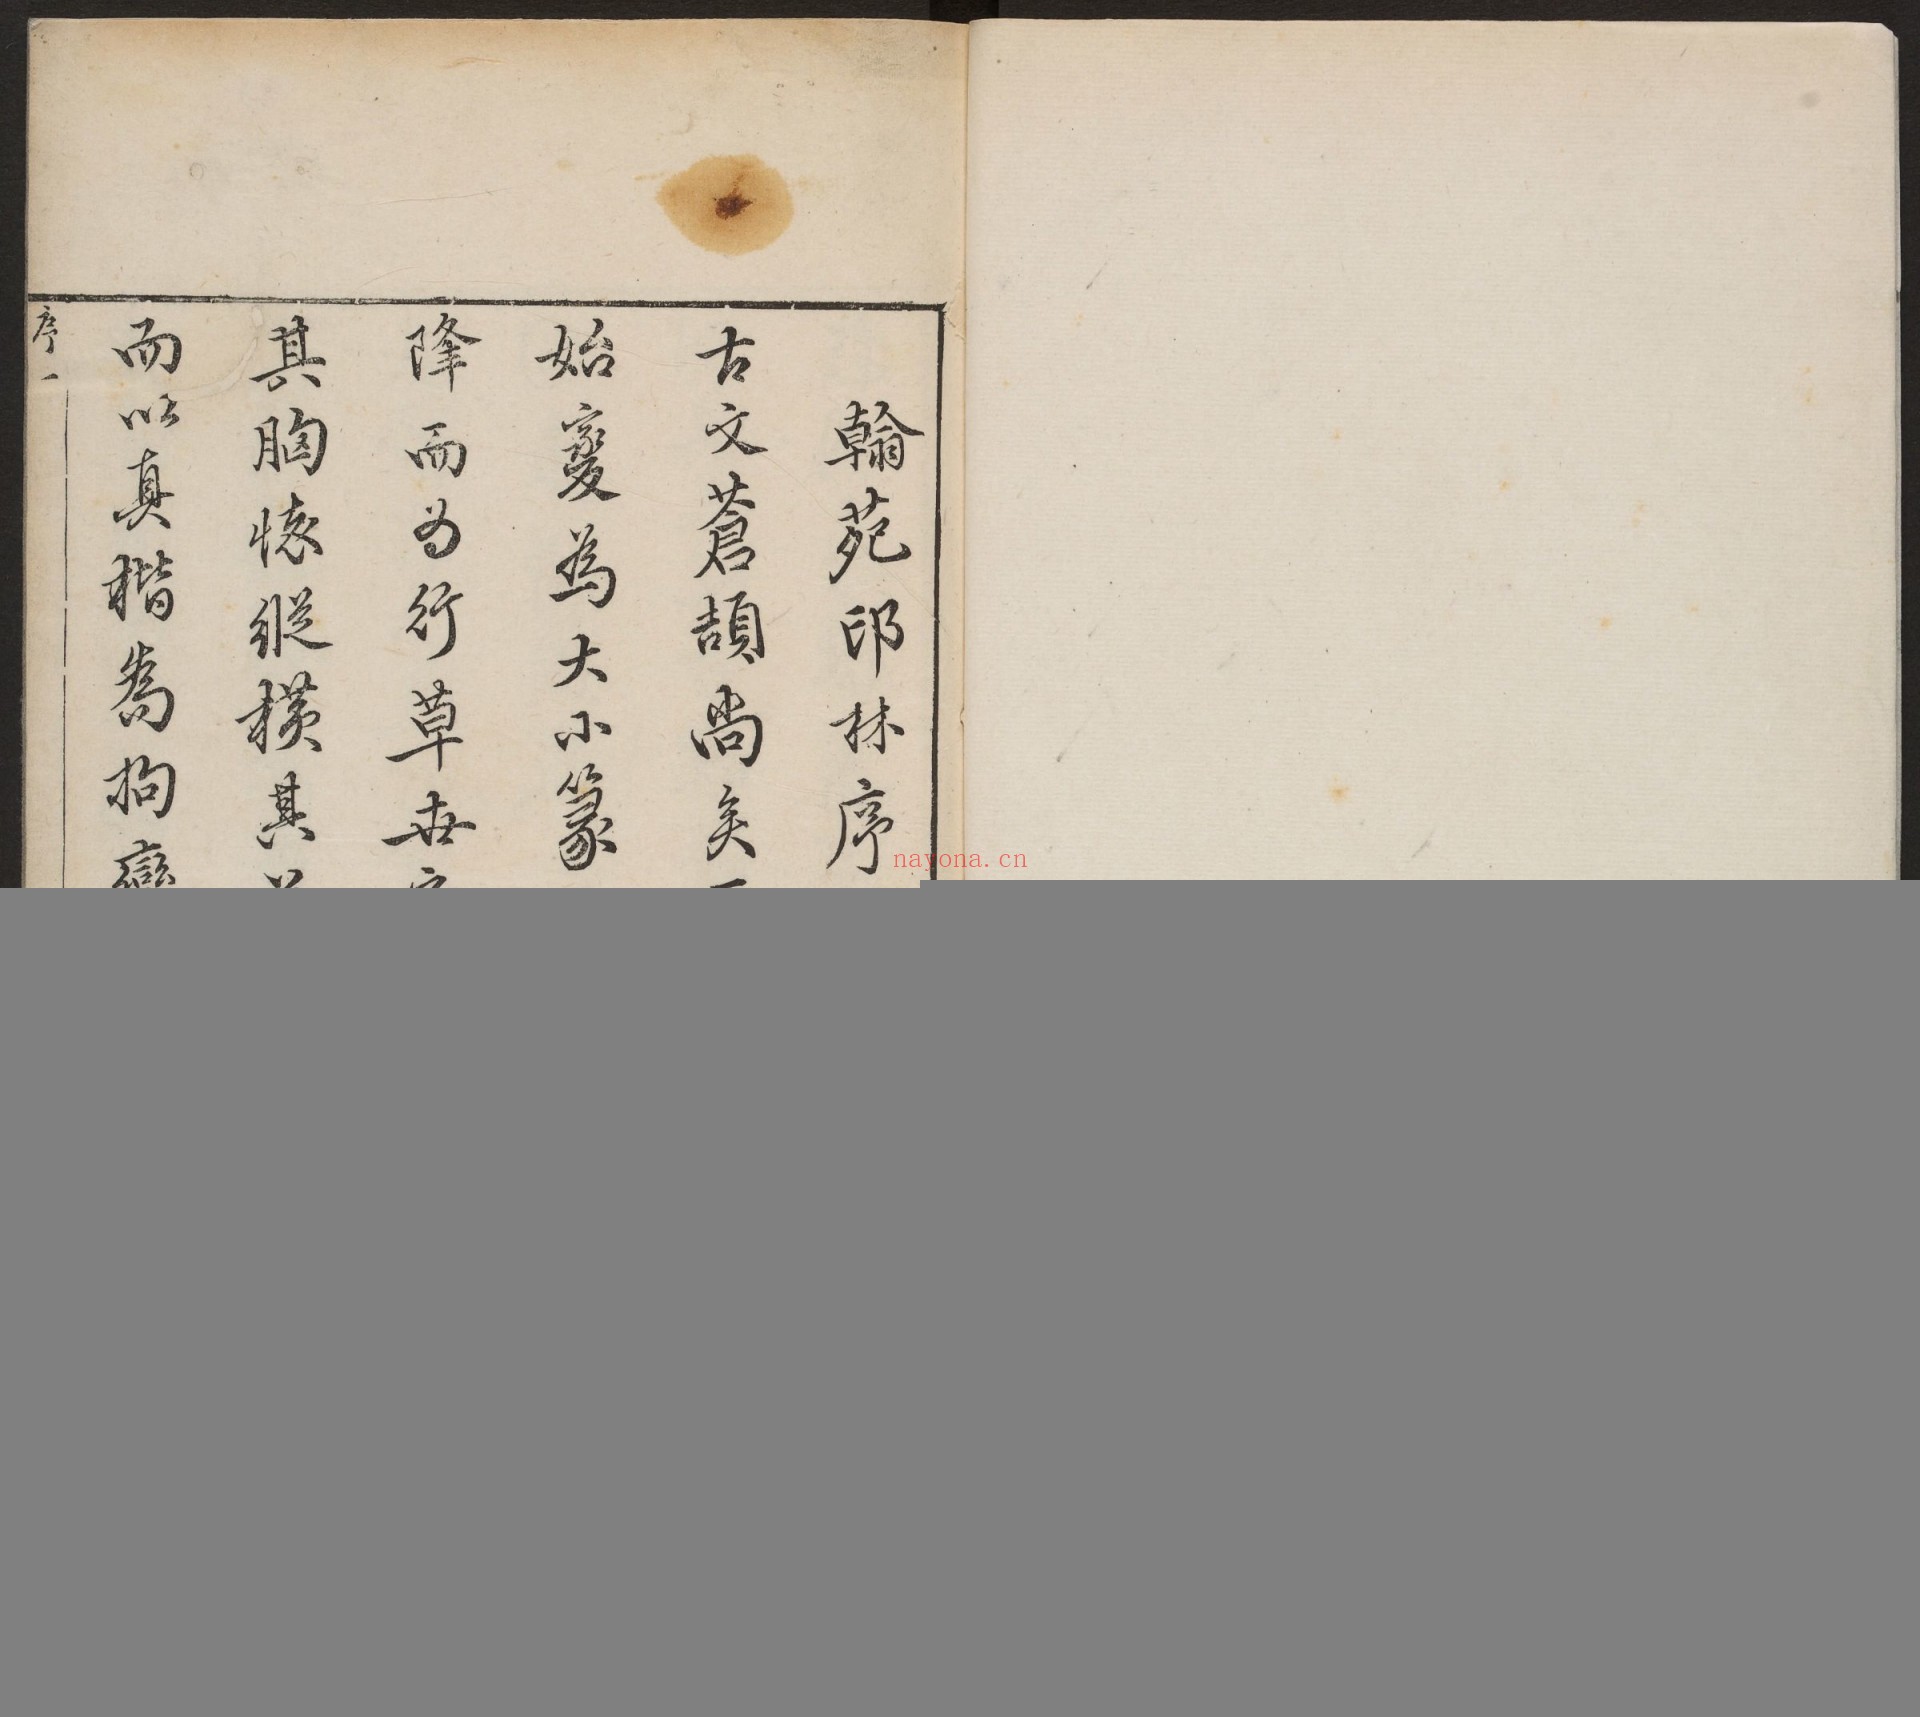 翰苑印林序
古文蒼頡尚矣
始變為大小篆
降而为行草世
其胸懷縱橫其
而以真楷為拘
序一
nayona.cn